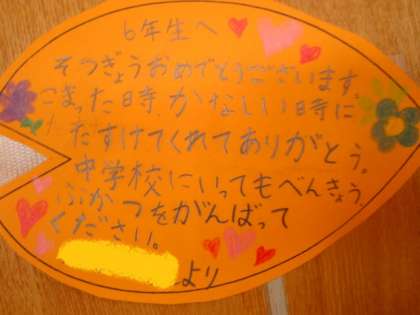 6年生へ
そつぎょうおめでとうございます。
こまった時、かなしい時に
たすけてくれてありがとう。
中学校にいってもべんきょう、
ぶかつをがんばって
ください。
より